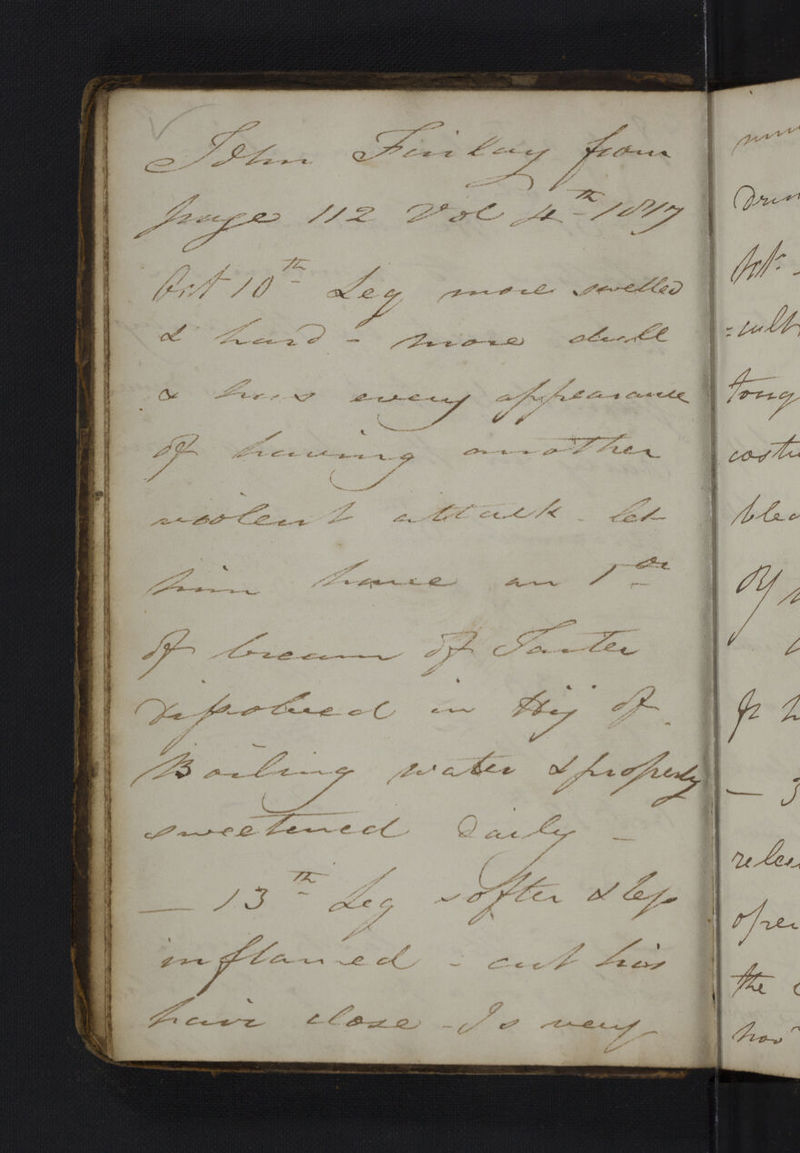 John Finlay from
page 112 Vol 4th 1817
Oct 10th Leg more swelled
& hard - more dull
& has every appearance
of having another
violent attack - let
him have an 1 oz
of cream of Tarter
dissolved in of
Boiling water & properly
sweetened daily -
— 13th Leg softer & less
inflamed - cut his
hair close - Is very